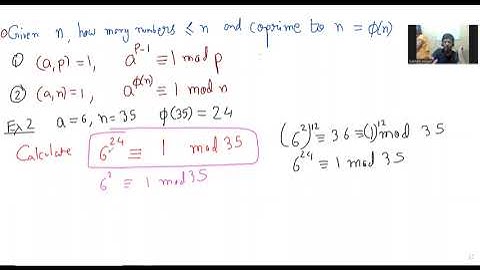 Given n, how many numbers ≤ n and coprime to n = φ(n)
① (a,p)=1, a^{p-1} ≡ 1 mod p
② (a,n)=1, a^{φ(n)} ≡ 1 mod n
Ex 2 a=6, n=35 φ(35)=24
Calculate 6^{24} ≡ 1 mod 35
6^2 ≡ 1 mod 35
(6^2)^{12} ≡ 36 ≡ (1)^{12} mod 35
6^{24} ≡ 1 mod 35